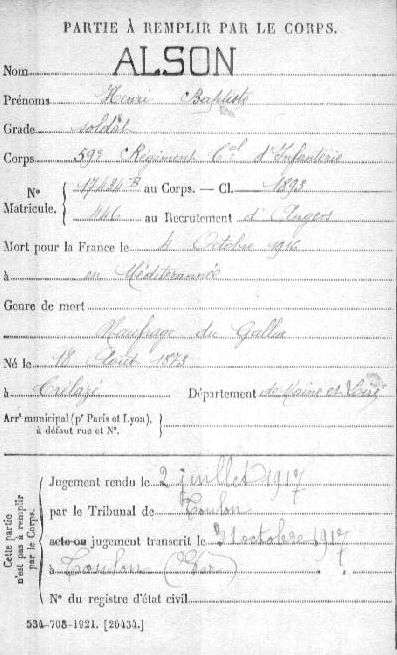 PARTIE À REMPLIR PAR LE CORPS.
Nom ALSON
Prénoms Henri Baptiste
Grade soldat
Corps 59e Régiment Cal d'Infanterie
N° Matricule. { 17424 B au Corps. — Cl. 1893
446 au Recrutement d'Angers
Mort pour la France le 4 Octobre 1916
à en Méditerranée
Genre de mort
Naufrage du Gallia
Né le 18 Août 1873
à Trélazé Département de Maine et Loire
Arrt municipal (pr Paris et Lyon), à défaut rue et N°. }
Cette partie n'est pas à remplir par le Corps.
Jugement rendu le 2 juillet 1917
par le Tribunal de Toulon
acte ou jugement transcrit le 31 octobre 1917
à Toulon (Var)
N° du registre d'état civil
534-708-1921. [26434.]